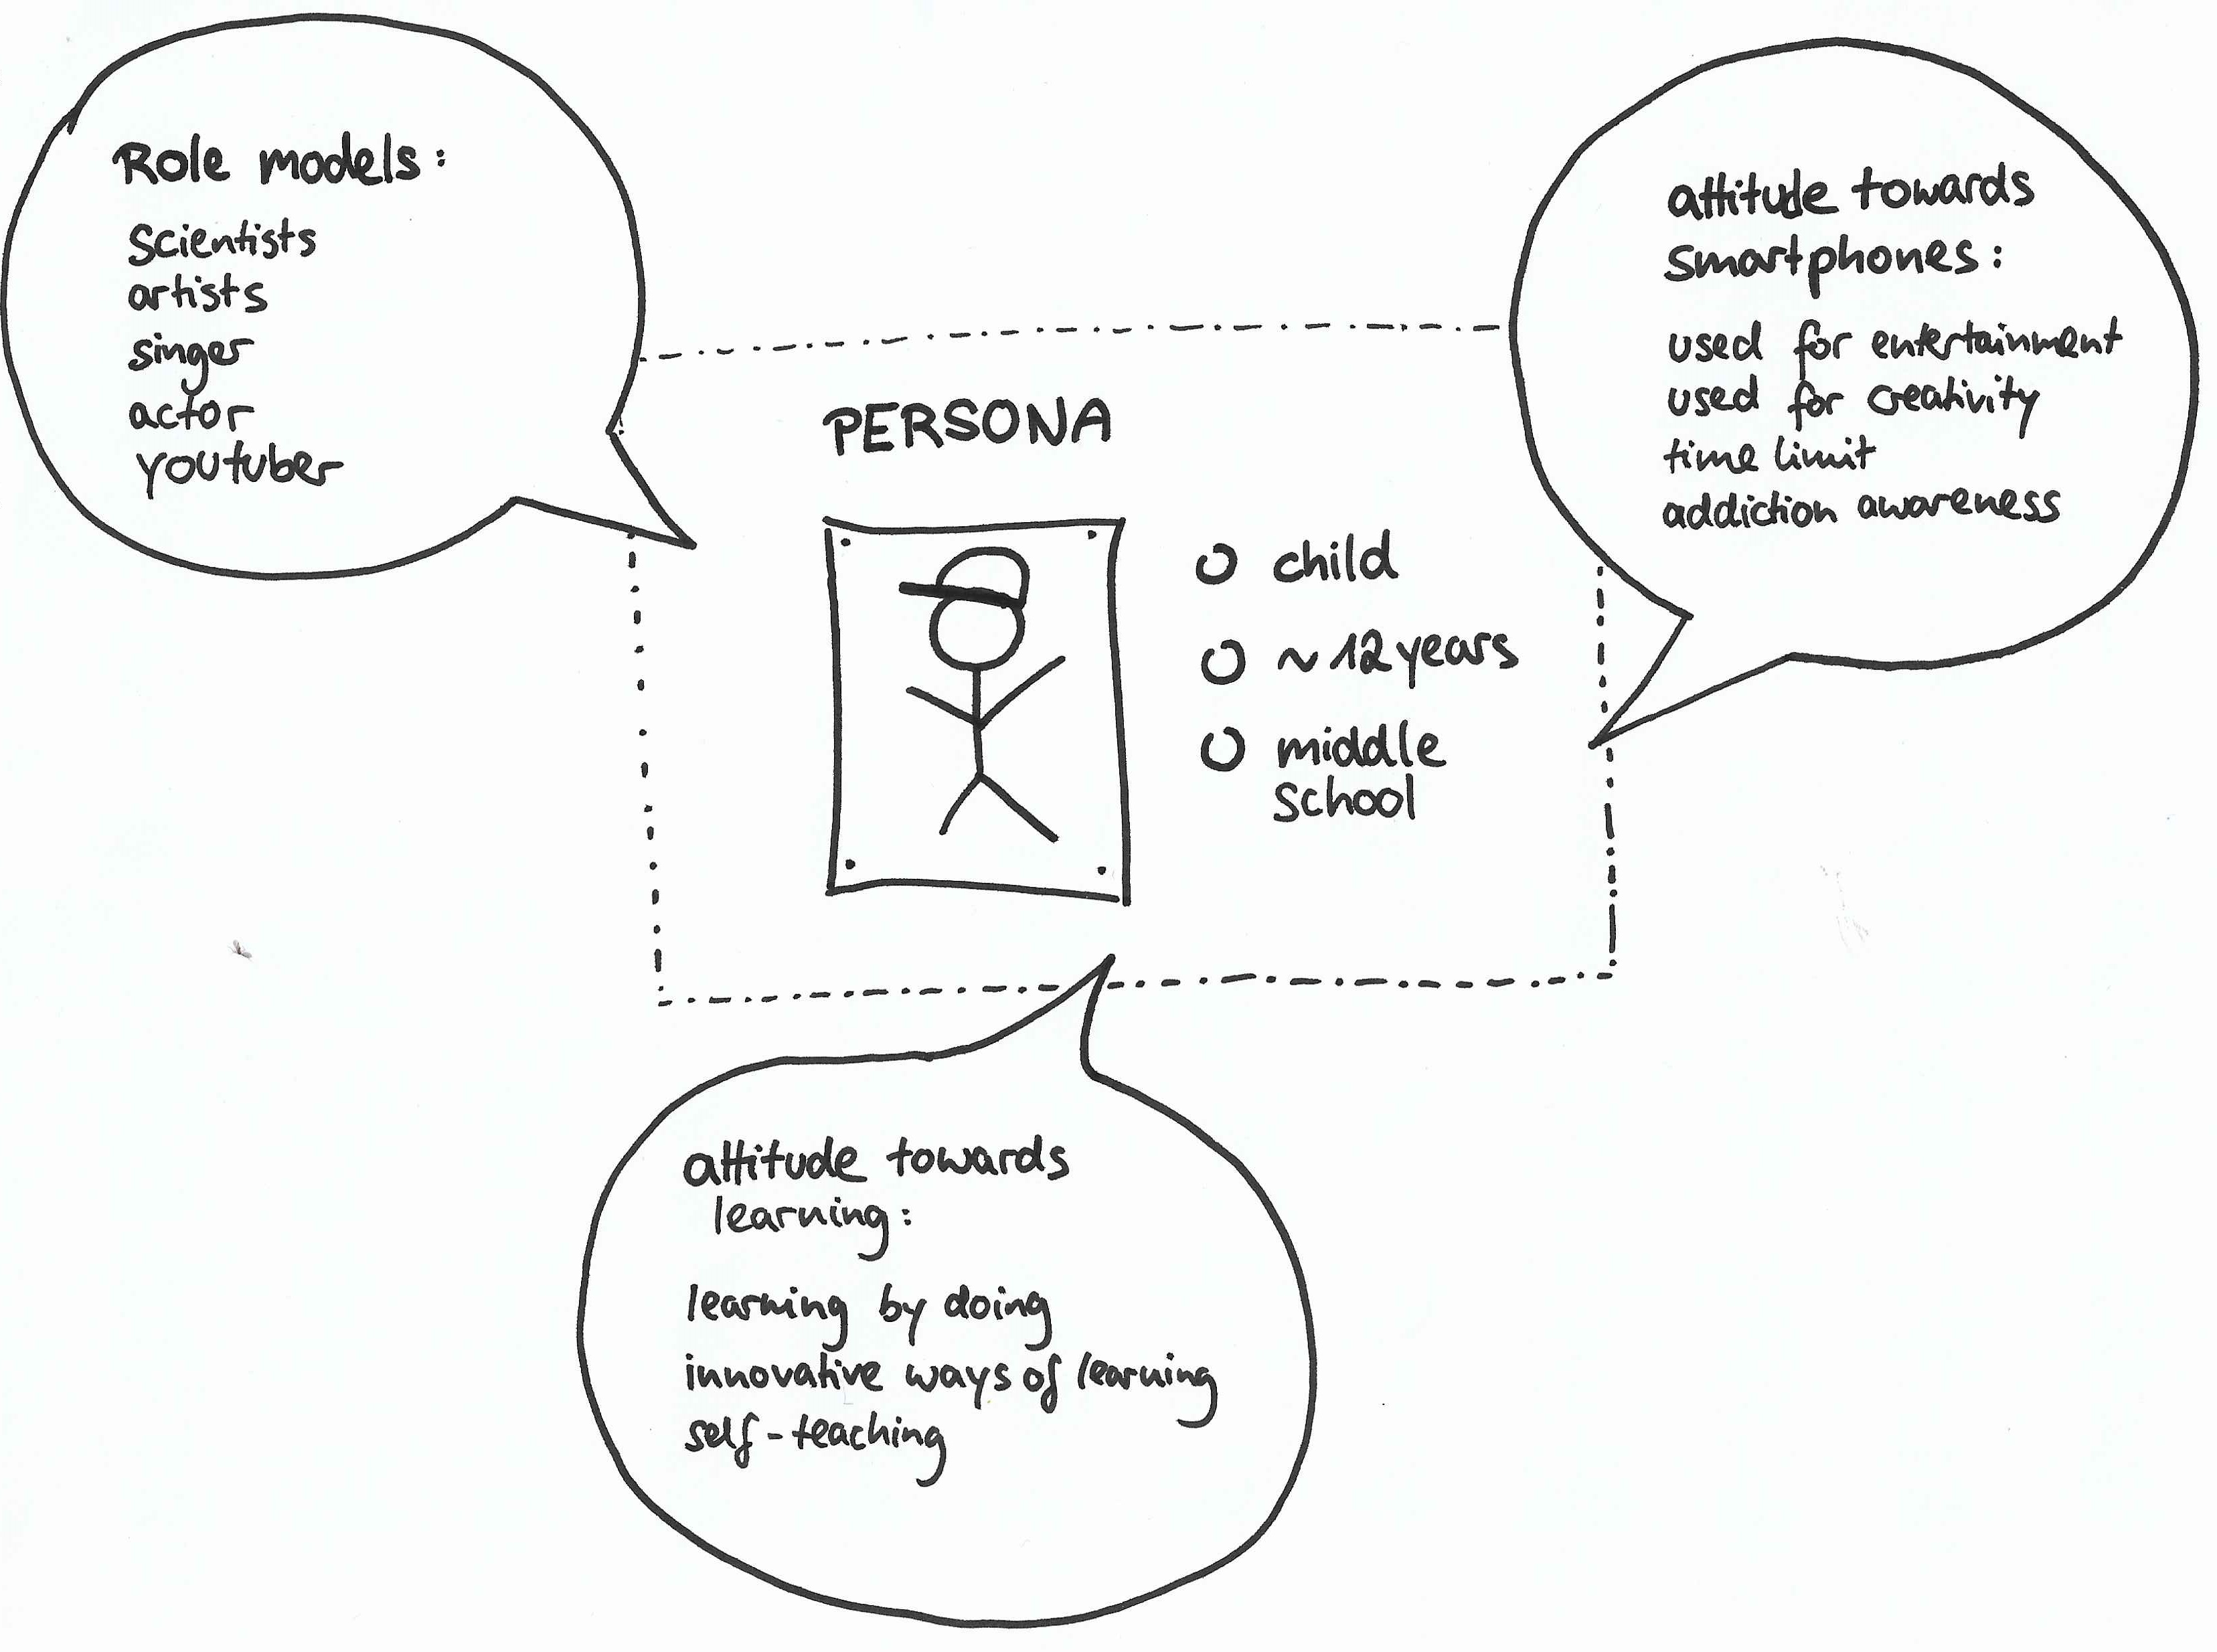 Role models:
Scientists
artists
singer
actor
youtuber
attitude towards
smartphones:
used for entertainment
used for creativity
time limit
addiction awareness
PERSONA
child
~12 years
middle
school
attitude towards
learning:
learning by doing
innovative ways of learning
self-teaching